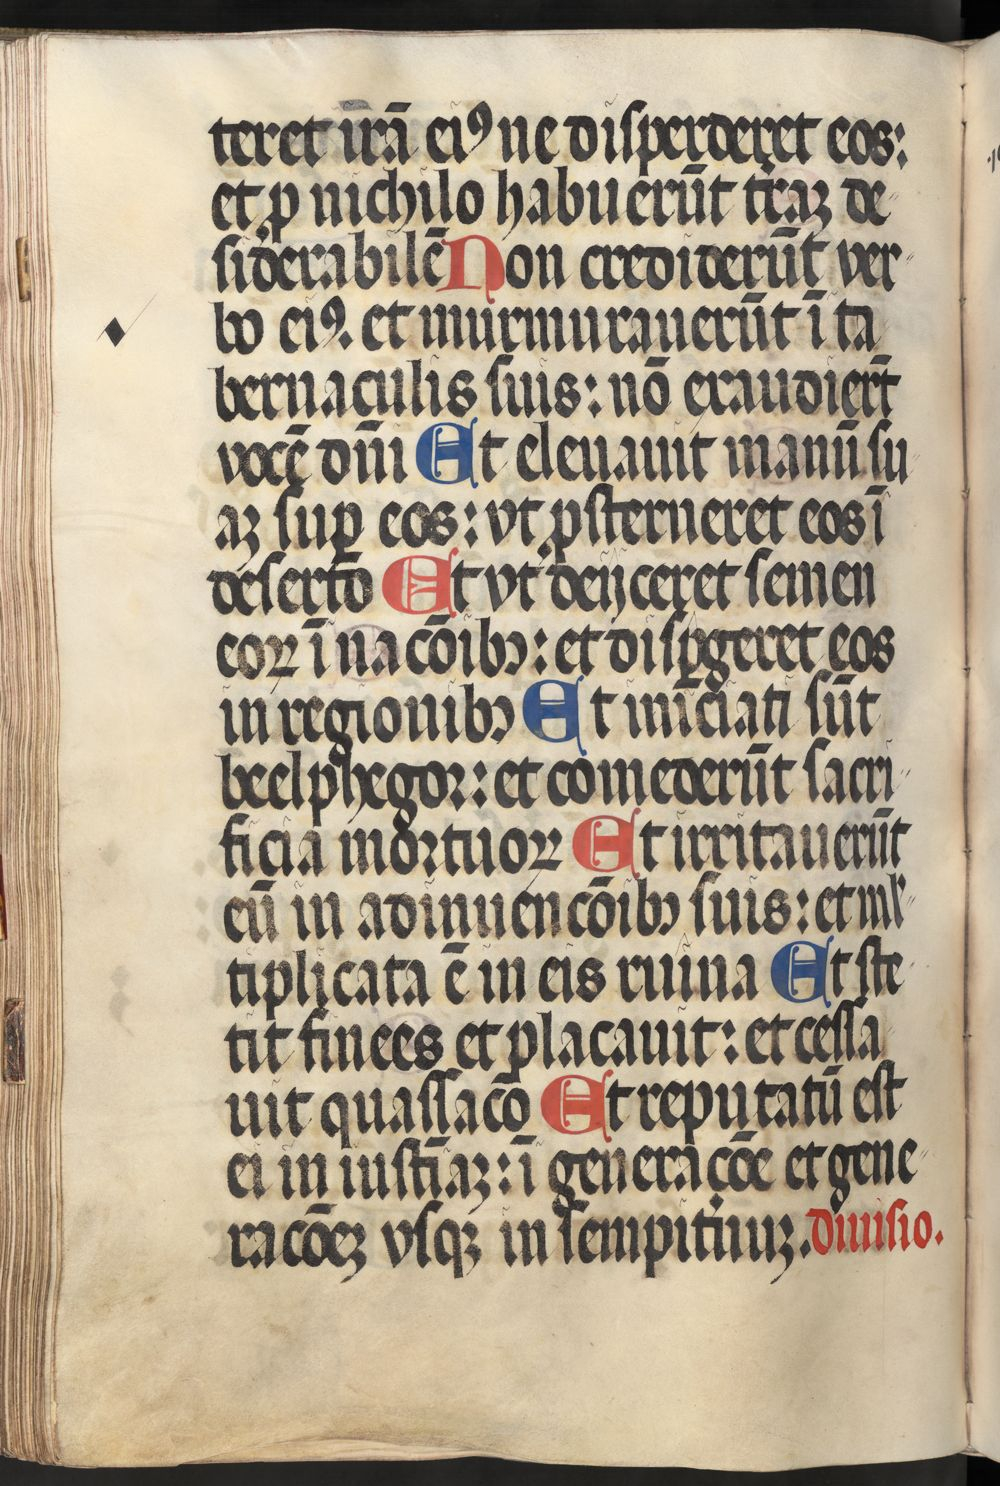 teret irā eiꝰ ne disperderet eos:
et ꝓ nichilo habuerūt t̄raꝫ de
siderabilē Non crediderūt ver
bo eiꝰ. et murmurauerūt ī ta
bernaculis suis: nō exaudiert̄
vocē dn̄i Et eleuauit manū su
aꝫ suꝑ eos: vt ꝓsterneret eos ī
deserto Et vt deijceret semen
eoꝝ ī nacōibꝫ: et disꝑgeret eos
in regionibꝫ Et iniciati sūt
beelphegor: et comederūt sacri
ficia mortuoꝝ Et irritauerūt
eū in adinuencōibꝫ suis: et ml̕
tiplicata ē in eis ruina Et ste
tit finees et placauit: et cessa
uit quassacō Et reputatū est
ei in iustīaꝫ: ī generacōe et gene
racōeꝫ vsqꝫ in sempit̕nuꝫ. diuisio.